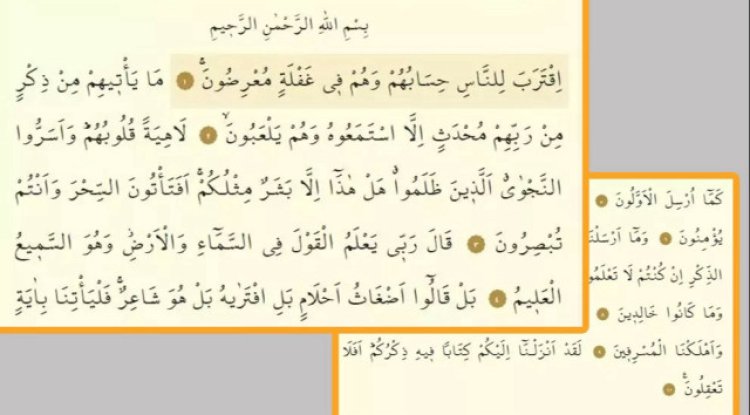 بِسْمِ اللهِ الرَّحْمٰنِ الرَّحٖيمِ
اِقْتَرَبَ لِلنَّاسِ حِسَابُهُمْ وَهُمْ فٖى غَفْلَةٍ مُعْرِضُونَۚ ﴿١﴾ مَا يَأْتٖيهِمْ مِنْ ذِكْرٍ
مِنْ رَبِّهِمْ مُحْدَثٍ اِلَّا اسْتَمَعُوهُ وَهُمْ يَلْعَبُونَۙ ﴿٢﴾ لَاهِيَةً قُلُوبُهُمْۜ وَاَسَرُّوا
النَّجْوٰىۗ اَلَّذٖينَ ظَلَمُواۗ هَلْ هٰذَٓا اِلَّا بَشَرٌ مِثْلُكُمْۚ اَفَتَأْتُونَ السِّحْرَ وَاَنْتُمْ
تُبْصِرُونَ ﴿٣﴾ قَالَ رَبّٖى يَعْلَمُ الْقَوْلَ فِى السَّمَٓاءِ وَالْاَرْضِۘ وَهُوَ السَّمٖيعُ
الْعَلٖيمُ ﴿٤﴾ بَلْ قَالُٓوا اَضْغَاثُ اَحْلَامٍ بَلِ افْتَرٰيهُ بَلْ هُوَ شَاعِرٌۚ فَلْيَأْتِنَا بِاٰيَةٍ
كَمَٓا اُرْسِلَ الْاَوَّلُونَ ﴿٥﴾
يُؤْمِنُونَ ﴿٦﴾ وَمَٓا اَرْسَلْنَا
الذِّكْرِ اِنْ كُنْتُمْ لَا تَعْلَمُو
وَمَا كَانُوا خَالِدٖينَ ﴿٨﴾
وَاَهْلَكْنَا الْمُسْرِفٖينَ ﴿٩﴾ لَقَدْ اَنْزَلْنَٓا اِلَيْكُمْ كِتَابًا فٖيهِ ذِكْرُكُمْۜ اَفَلَا
تَعْقِلُونَ۟ ﴿١٠﴾